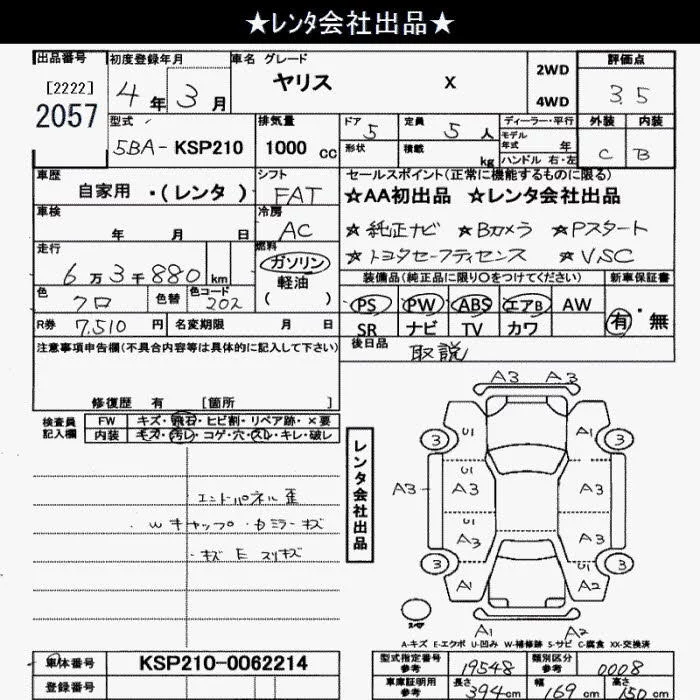 ★レンタ会社出品★
出品番号 初度登録年月 車名 グレード 評価点
[2222] 4年 3月 ヤリス X 2WD 3.5
2057 4WD
型式 排気量 ドア 5 定員 5人 ディーラー・平行 外装 内装
5BA- KSP210 1000cc 形状 積載 kg モデル年式 年 C B
ハンドル 右・左
車歴 シフト セールスポイント(正常に機能するものに限る)
自家用 ・(レンタ) FAT ★AA初出品 ★レンタ会社出品
車検 年 月 日 冷房 AC ★純正ナビ ★Bカメラ ★Pスタート
走行 燃料 ★トヨタセーフティセンス ★VSC
6万3千880km ガソリン 装備品(純正品に限り○をつけてください) 新車保証書
軽油
( )
色 クロ 色替 色コード 202 PS PW ABS エアB AW 有・無
R券 7,510円 名変期限 月 日 SR ナビ TV カワ
注意事項申告欄(不具合内容等は具体的に記入して下さい) 後日品 取説
修復歴 有 [箇所 ]
検査員記入欄 FW キズ・飛石・ヒビ割・リペア跡・×要
内装 キズ・汚レ・コゲ・穴・スレ・キレ・破レ
エンドパネル歪
Wキャップ・ミラーキズ
・キズ E スリキズ
レンタ会社出品
A3 A3
3 U1 A1 3
U1
A3 A3 A3
U1
A3 A3
3 U1 3
A1 A2
A1 A2
スペア
A-キズ E-エクボ U-凹み W-補修跡 S-サビ C-腐食 XX-交換済
車体番号 KSP210-0062214 型式指定番号 参考 19548 類別区分 参考 0008
登録番号 車庫証明用 参考 長さ 394cm 幅 169cm 高さ 150cm